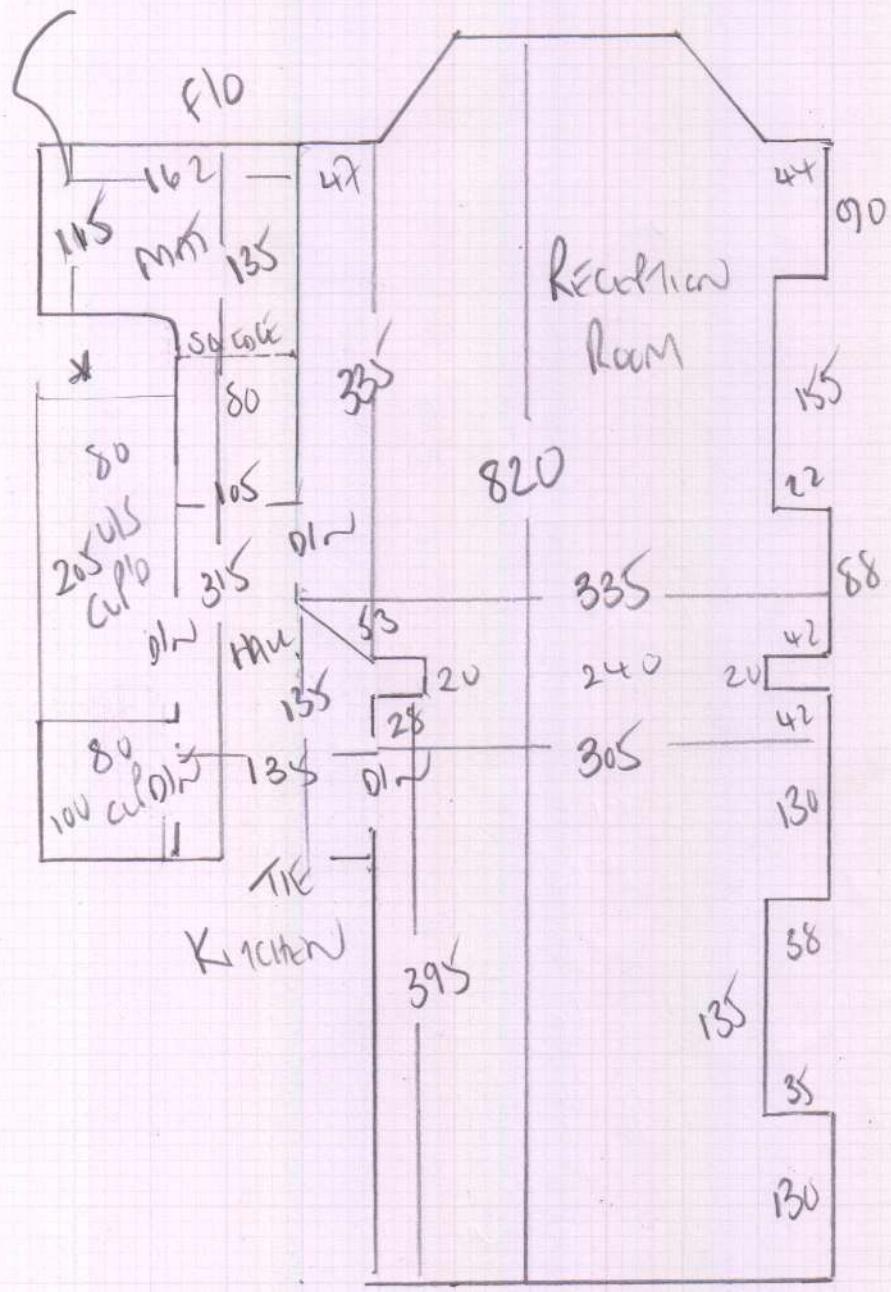 F/D
162
47
44
90
115
MAT
135
RECEPTION
ROOM
SQ EDGE
80
335
155
80
820
22
105
U/S
205
CUP'D
315
DIN
335
88
DIN
HALL
53
42
135
20
240
20
28
42
80
135
DIN
305
100
CUP
DIN
130
TILE
KITCHEN
38
395
135
35
130